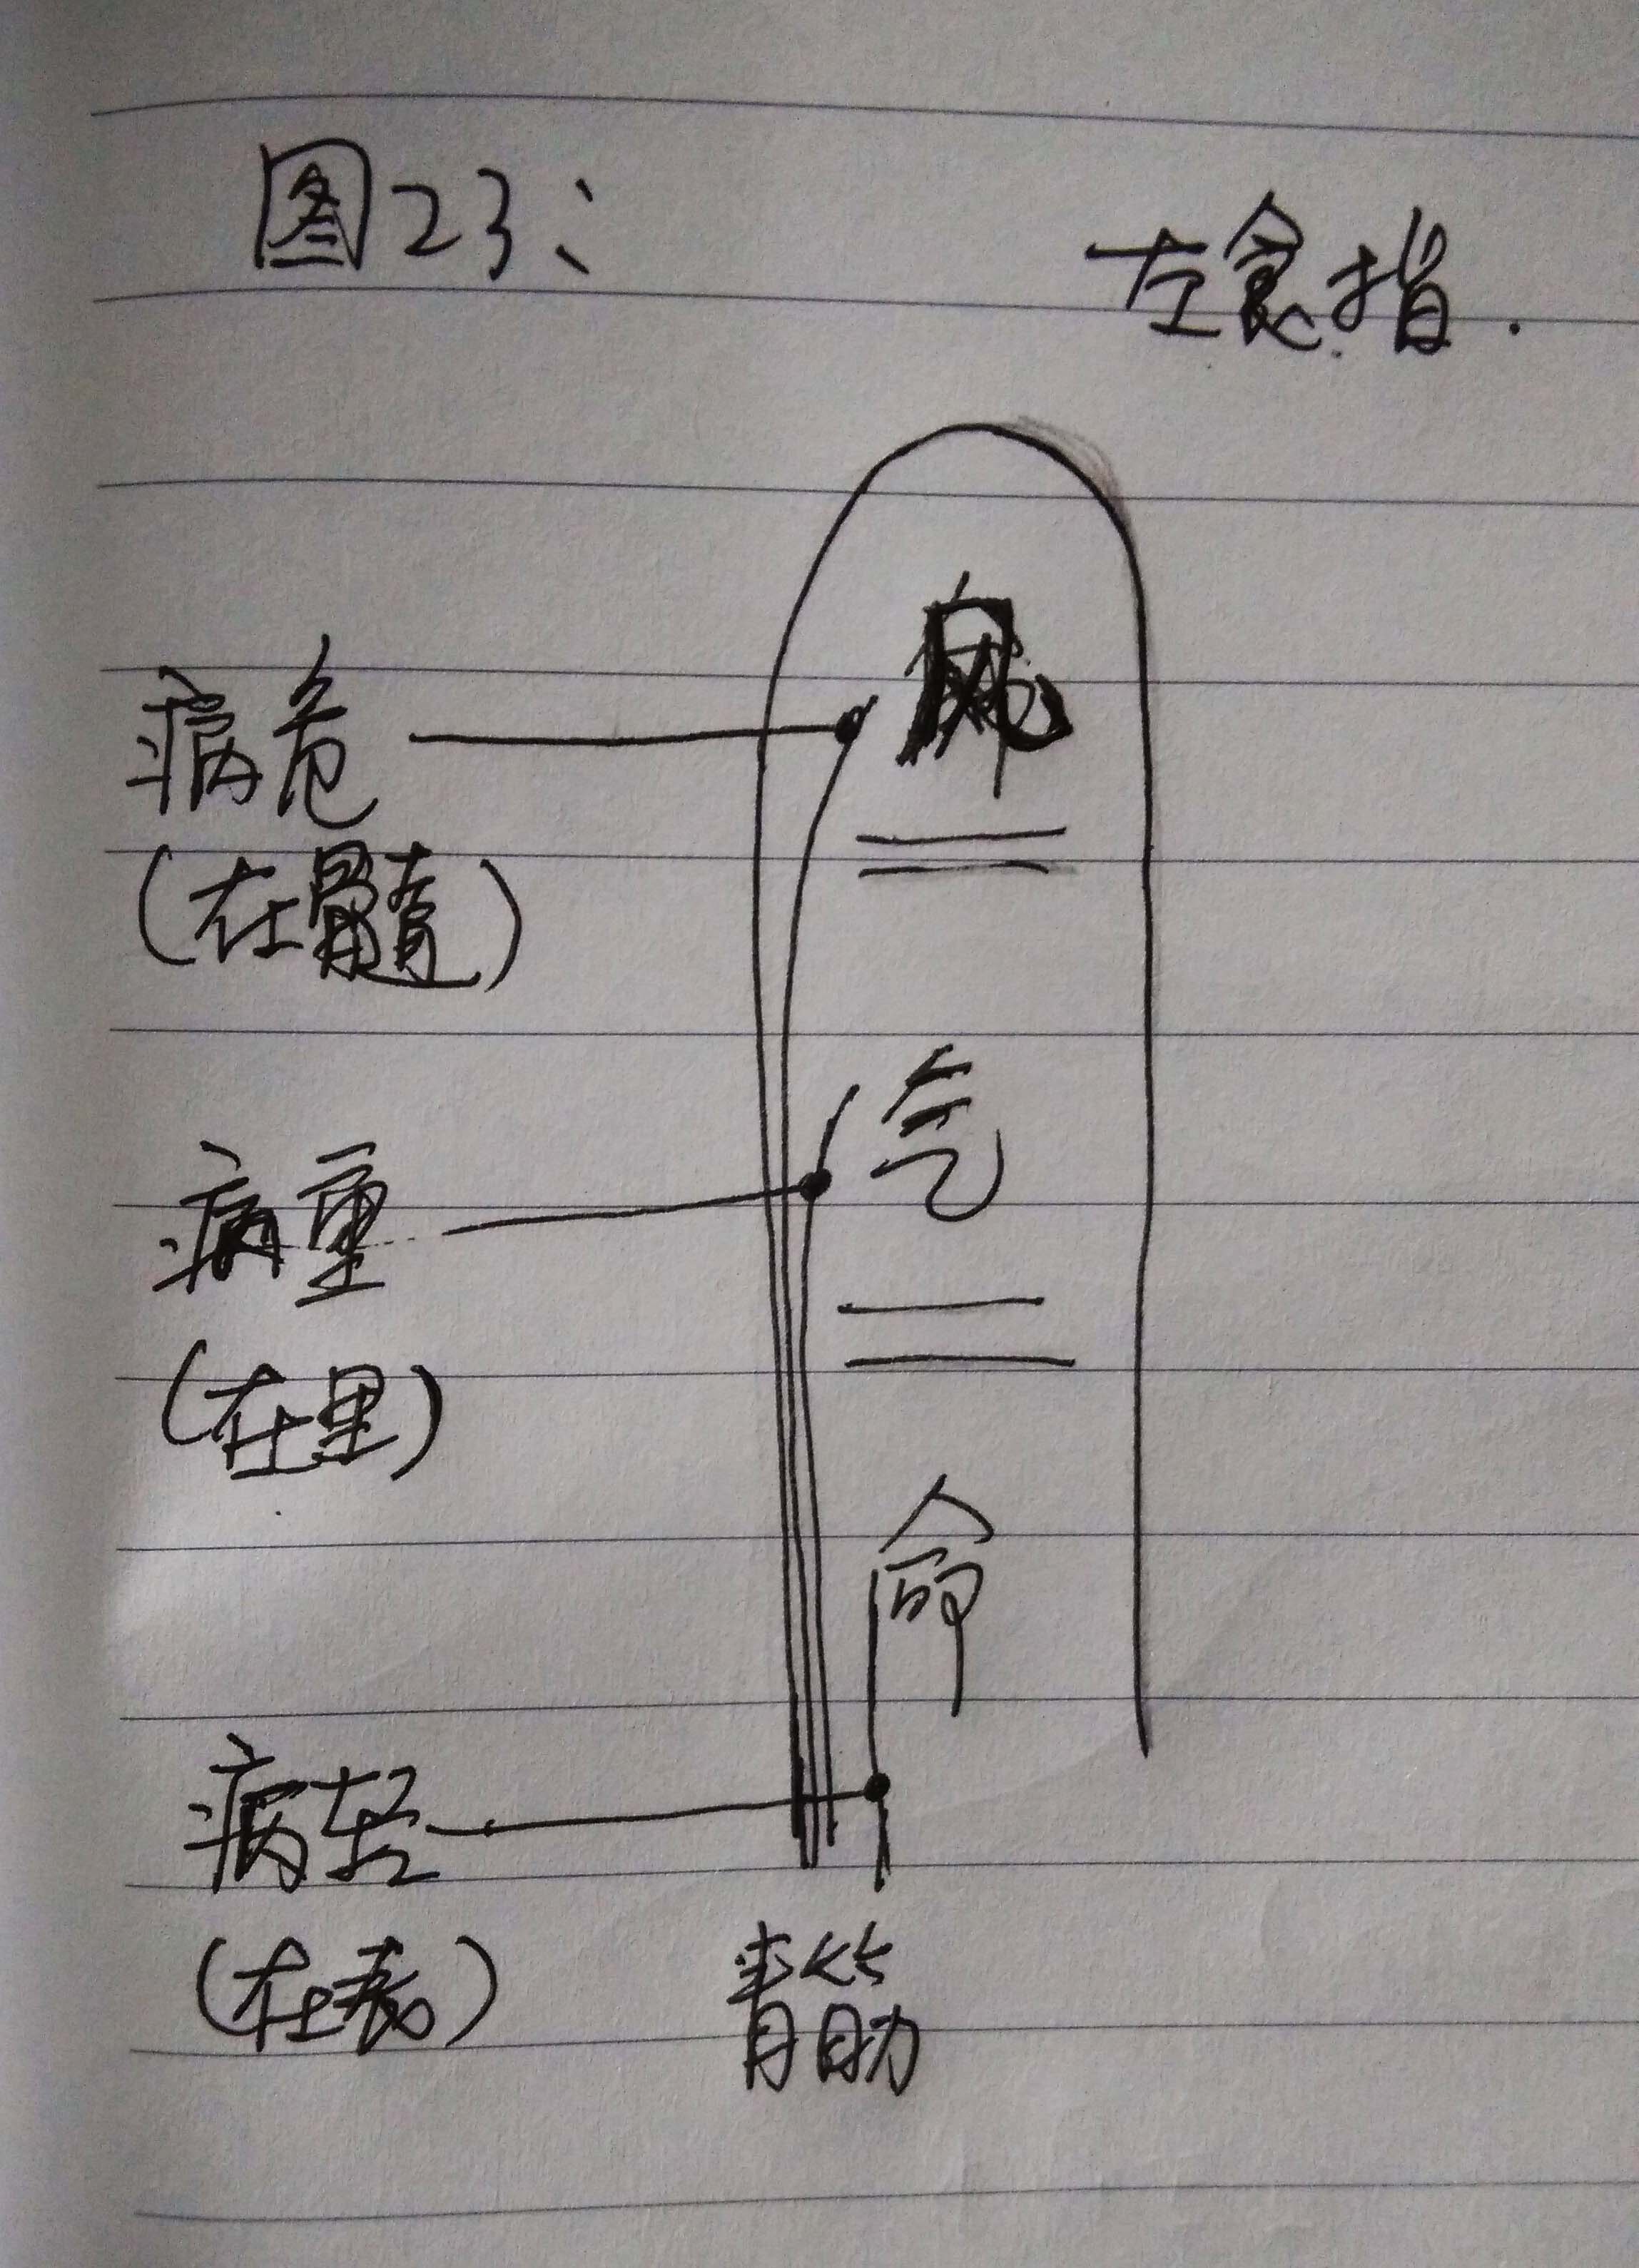 图23:
左食指.
风
病危
(在髓)
气
病重
(在里)
命
病轻
(在表)
青筋